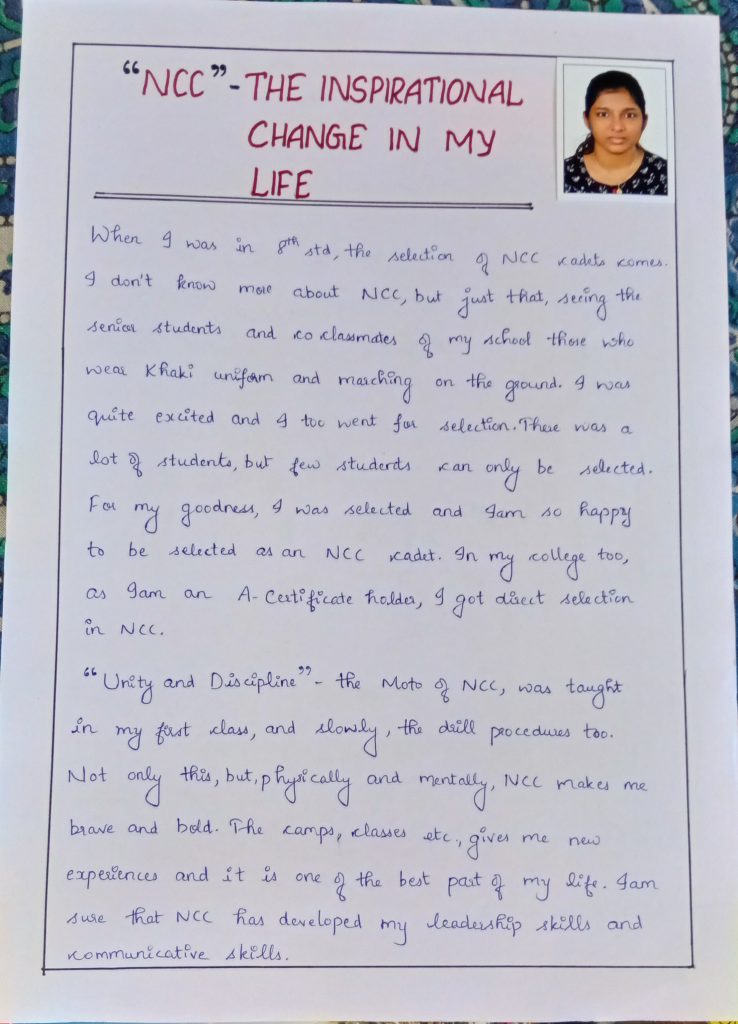 “NCC” - THE INSPIRATIONAL
CHANGE IN MY
LIFE
When I was in 8th std, the selection of NCC cadets comes.
I don't know more about NCC, but just that, seeing the
senior students and co classmates of my school those who
wear Khaki uniform and marching on the ground. I was
quite excited and I too went for selection. There was a
lot of students, but few students can only be selected.
For my goodness, I was selected and Iam so happy
to be selected as an NCC cadet. In my college too,
as Iam an A- Certificate holder, I got direct selection
in NCC.
“Unity and Discipline” - the Moto of NCC, was taught
in my first class, and slowly, the drill procedures too.
Not only this, but, physically and mentally, NCC makes me
brave and bold. The camps, classes etc., gives me new
experiences and it is one of the best part of my life. Iam
sure that NCC has developed my leadership skills and
communicative skills.